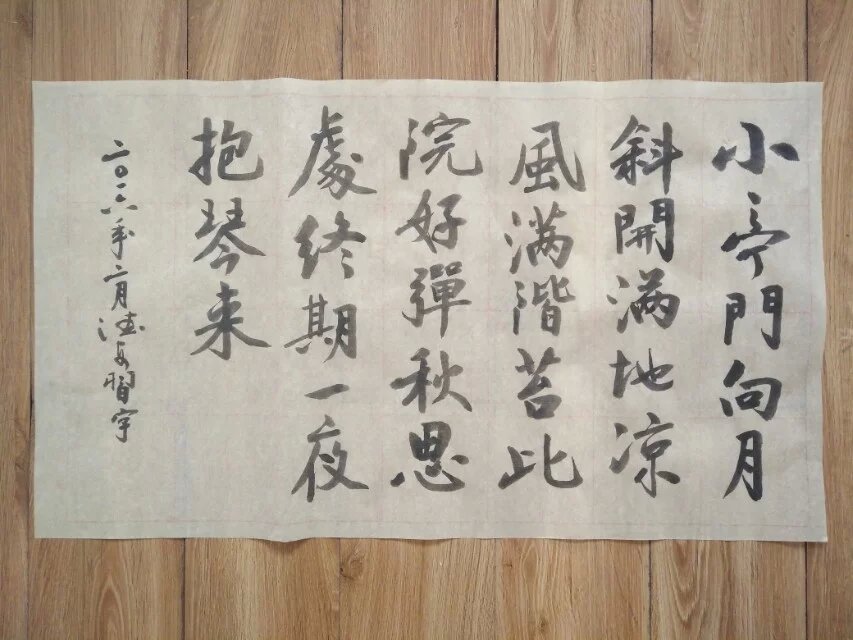 小亭門向月
斜開满地凉
風满階苔此
院好彈秋思
處終期一夜
抱琴来
二〇一六年二月習字